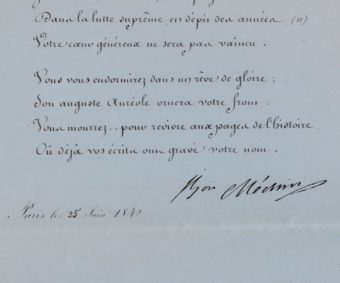 Dans la lutte suprême, en dépit des années, (11)
Votre cœur généreux ne sera pas vaincu.
Vous vous endormirez dans un rêve de gloire;
Son auguste Auréole ornera votre front.
Vous mourrez.. pour revivre aux pages de l'histoire
Où déjà vos écrits ont gravé votre nom.
Paris le 25 Juin 184